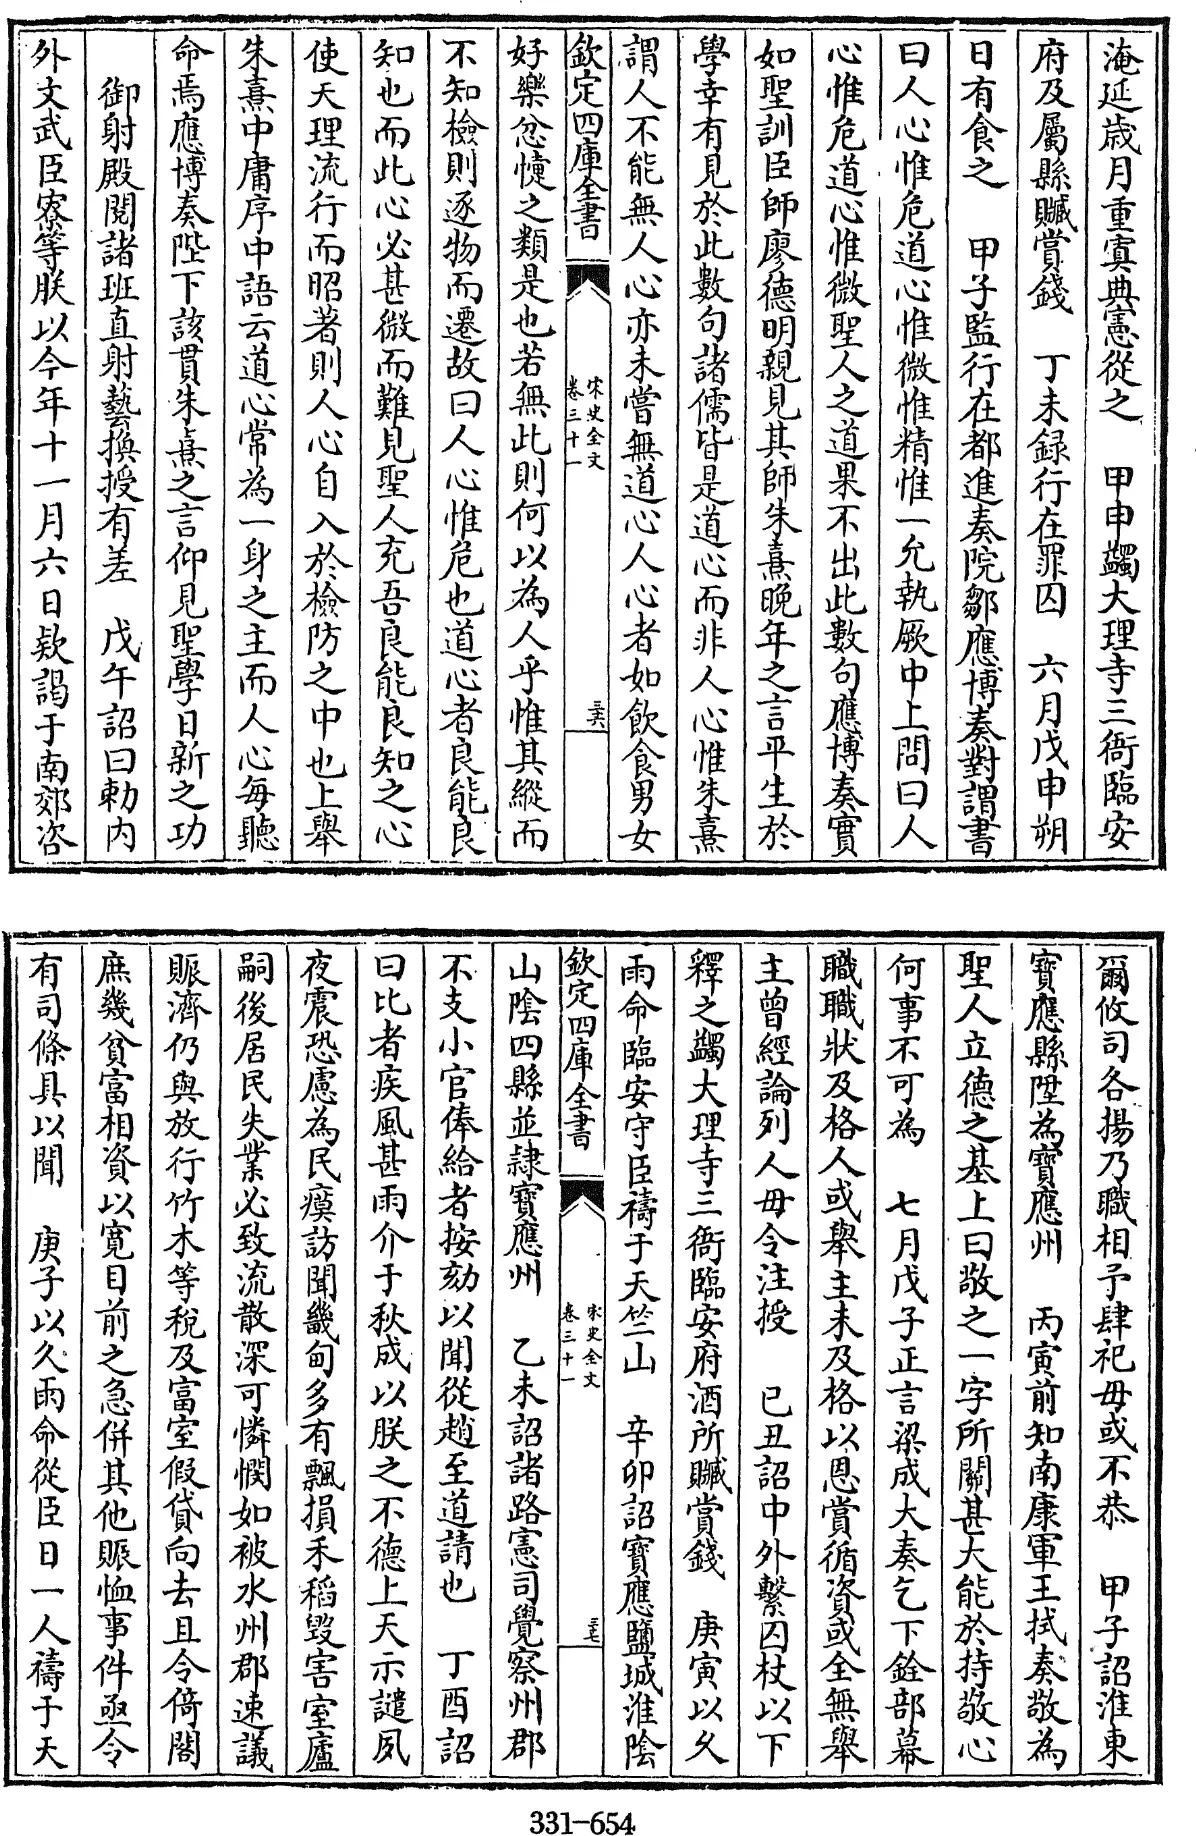 淹延歲月重寘典憲從之　甲申蠲大理寺三衙臨安
府及屬縣贓賞錢　丁未録行在罪囚　六月戊申朔
日有食之　甲子監行在都進奏院鄒應博奏對謂書
曰人心惟危道心惟微惟精惟一允執厥中上問曰人
心惟危道心惟微聖人之道果不出此數句應博奏實
如聖訓臣師廖德明親見其師朱熹晩年之言平生於
學幸有見於此數句諸儒皆是道心而非人心惟朱熹
謂人不能無人心亦未嘗無道心人心者如飲食男女
欽定四庫全書　宋史全文卷三十一　三六
好樂忿懥之類是也若無此則何以為人乎惟其縱而
不知檢則逐物而遷故曰人心惟危也道心者良能良
知也而此心必甚微而難見聖人充吾良能良知之心
使天理流行而昭著則人心自入於檢防之中也上舉
朱熹中庸序中語云道心常為一身之主而人心每聽
命焉應博奏陛下該貫朱熹之言仰見聖學日新之功
御射殿閱諸班直射藝換授有差　戊午詔曰勑内
外文武臣寮等朕以今年十一月六日欵謁于南郊咨
爾攸司各揚乃職相予肆祀毋或不恭　甲子詔淮東
寳應縣陞為寳應州　丙寅前知南康軍王拭奏敬為
聖人立德之基上曰敬之一字所關甚大能於持敬心
何事不可為　七月戊子正言梁成大奏乞下銓部幕
職職狀及格人或舉主未及格以恩賞循資或全無舉
主曾經論列人毋令注授　已丑詔中外繫囚杖以下
釋之蠲大理寺三衙臨安府酒所贓賞錢　庚寅以久
雨命臨安守臣禱于天竺山　辛卯詔寳應鹽城淮陰
欽定四庫全書　宋史全文卷三十一　三七
山陰四縣並隷寳應州　乙未詔諸路憲司覺察州郡
不支小官俸給者按劾以聞從趙至道請也　丁酉詔
曰比者疾風甚雨介于秋成以朕之不德上天示譴夙
夜震恐慮為民瘼訪聞畿甸多有飄損禾稻毀害室廬
嗣後居民失業必致流散深可憐憫如被水州郡速議
賑濟仍與放行竹木等税及富室假貸向去且令倚閣
庶幾貧富相資以寛目前之急併其他賑恤事件亟令
有司條具以聞　庚子以久雨命從臣日一人禱于天
331-654